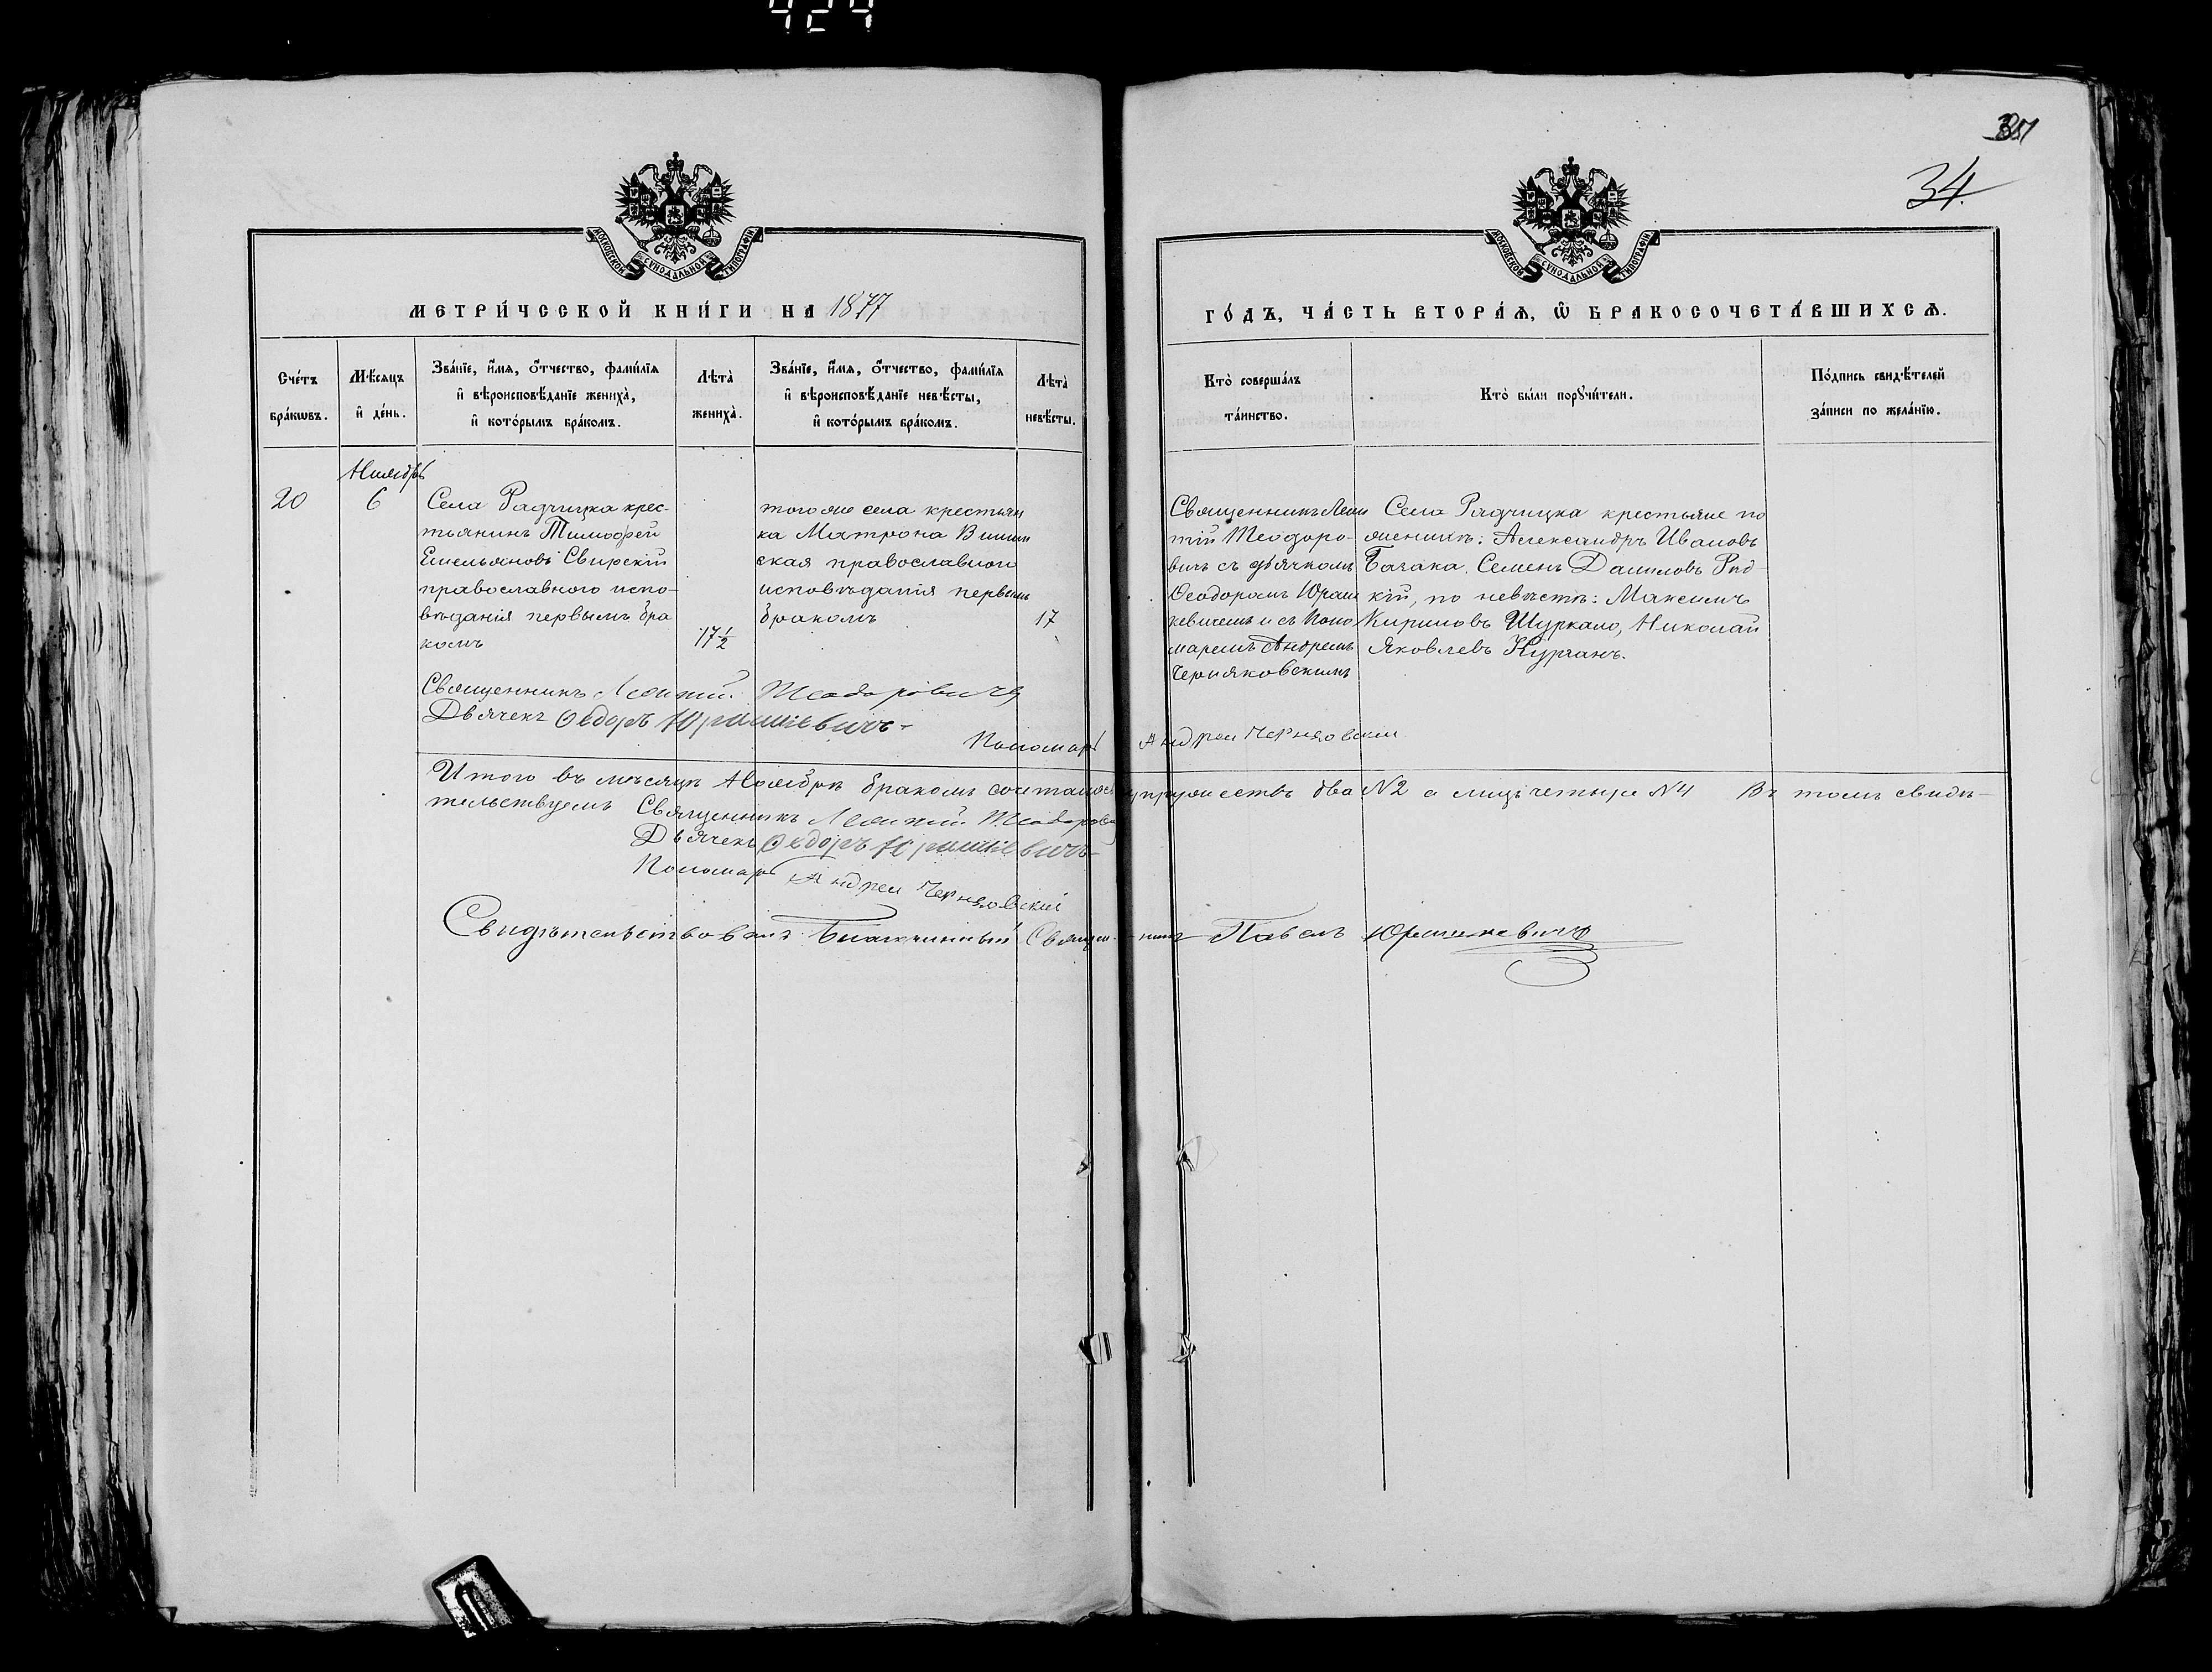 424
34
МОСКОВСКОЙ СѴНОДАЛЬНОЙ ТИПОГРАФІИ
МОСКОВСКОЙ СѴНОДАЛЬНОЙ ТИПОГРАФІИ
МЕТРИ́ЧЕСКОЙ КНИ́ГИ НА 1877
ГО́ДЪ, ЧА́СТЬ ВТОРА́Ѧ, Ѽ БРАКОСОЧЕТА́ВШИХСѦ.
Сче́тъ бра́кѡвъ.
Мѣ́сяцъ и҆ де́нь.
Зва́нїе, и҆́мя, ѻ҆́тчество, фами́лїя и҆ вѣроисповѣ́данїе жениха̀, и҆ кото́рымъ бра́комъ.
Лѣта̀ жениха̀.
Зва́нїе, и҆́мя, ѻ҆́тчество, фами́лїя и҆ вѣроисповѣ́данїе невѣ́сты, и҆ кото́рымъ бра́комъ.
Лѣта̀ невѣ́сты.
Кто̀ соверша́лъ та́инство.
Кто̀ бы́ли порꙋчи́тели.
По́дпись свидѣ́телей за́писи по жела́нїю.
20
Ноябрь
6
Села Радчицка крес-
тьянинъ Тимофей
Емельяновъ Свирскій
православного испо-
вѣданія первымъ бра
комъ
17 1/2
того же села крестьян
ка Матрона
ская православного
исповѣданія первымъ
бракомъ
17
Священникъ Леон
тій Теодоро-
вичъ съ дьячкомъ
Ѳеодоромъ Юраш
кевичемъ и съ Поно
маремъ Андреемъ
Черняковскимъ
Села Радчицка крестьяне по
женихѣ: Александръ Ивановъ
Бачака, Семенъ Даниловъ Рад-
кій, по невѣстѣ: Максимъ
Кириловъ Шуркало, Николай
Яковлевъ Курганъ.
Священникъ Леонтій Теодоровичъ
Дьячекъ Ѳедоръ Юрашкевичъ
Пономарь Андрей Черняовскій
Итого въ мѣсяцѣ Ноябрѣ бракомъ сочеталось супружествъ два №2 а лицъ четыре №4 Въ томъ свидѣ-
тельствуемъ Священникъ Леонтій Теодорович
Дьячекъ Ѳедоръ Юрашкевичъ
Пономарь Андрей Черняовскій
Свидѣтельствовалъ Благочинный Священникъ Павелъ Юрашкевичъ